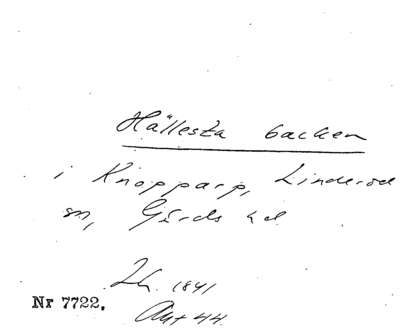 Hällesta backen
i Knopparp, Linderöd
sn, Gärds hd
1841
Nr 7722.
44.